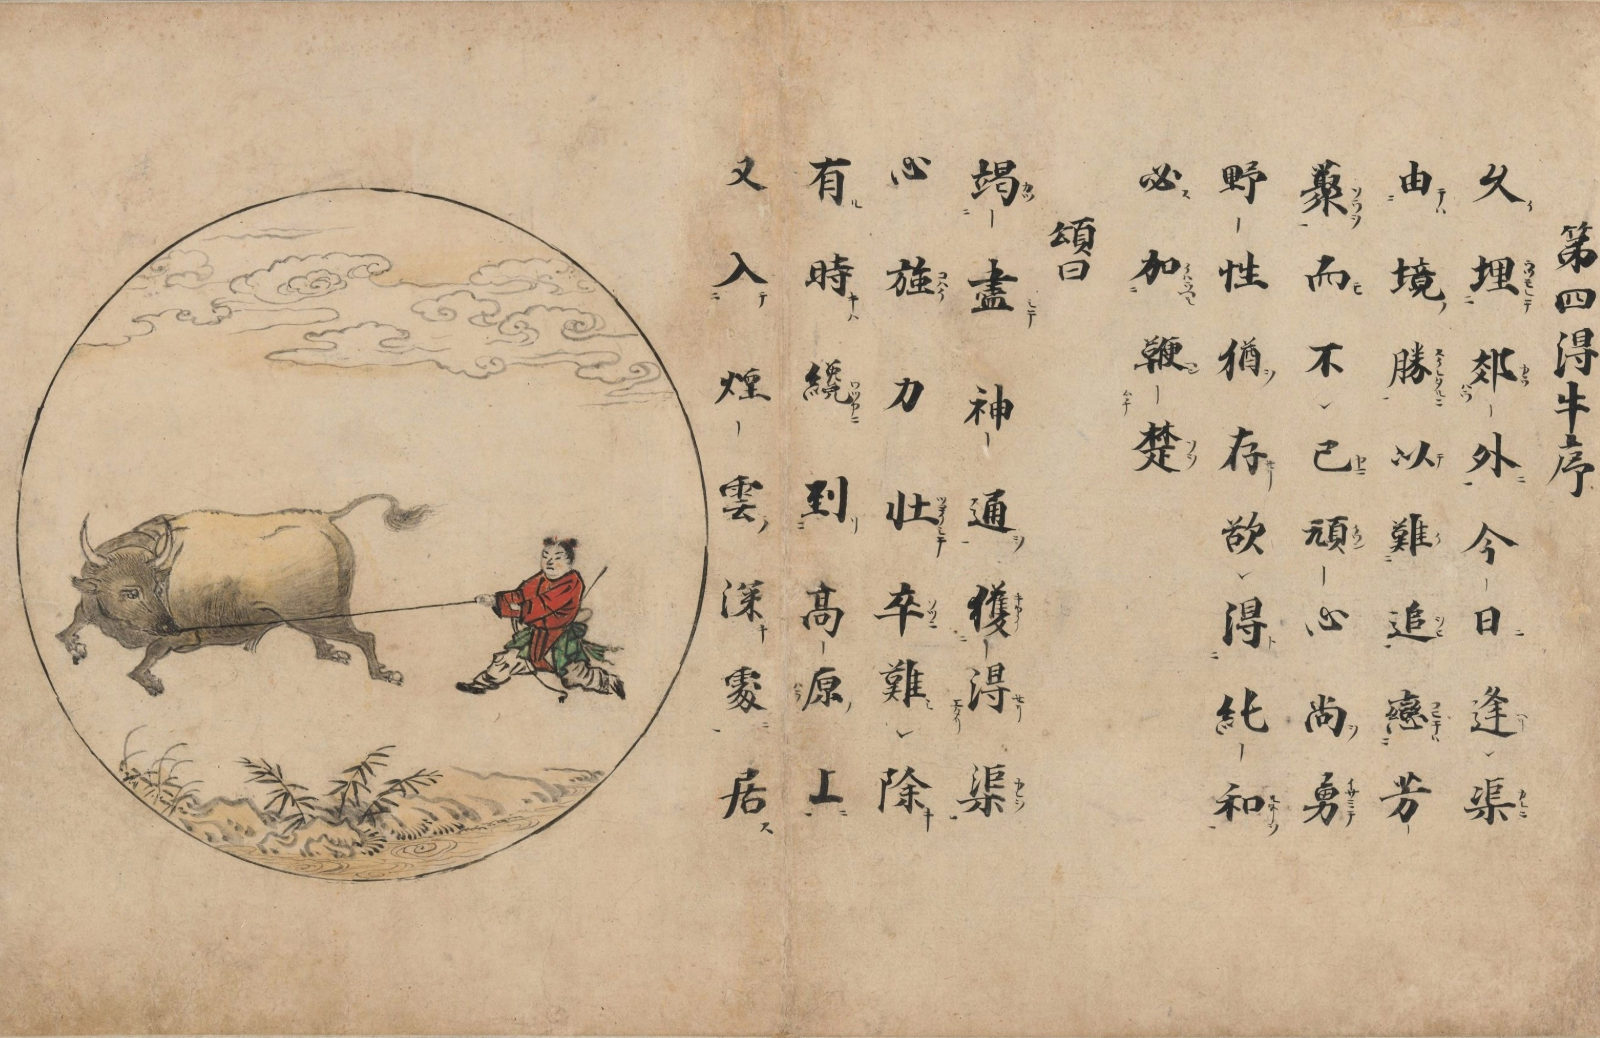 第四得牛序
久埋郊外今日逢渠
由境勝以難追戀芳
藂而不已頑心尚勇
野性猶存欲得純和
必加鞭楚
頌曰
竭盡神通獲得渠
心強力壮卒難除
有時纔到高原上
又入煙雲深處居